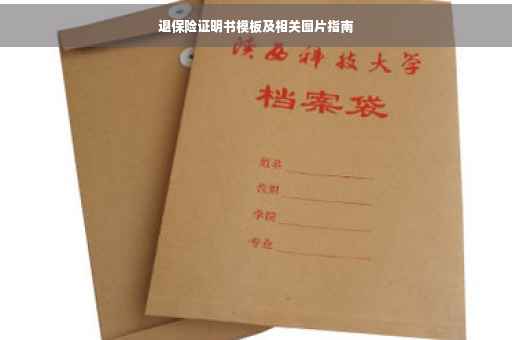 退保险证明书模板及相关图片指南
陕西科技大学
档案袋
姓名
学院
专业